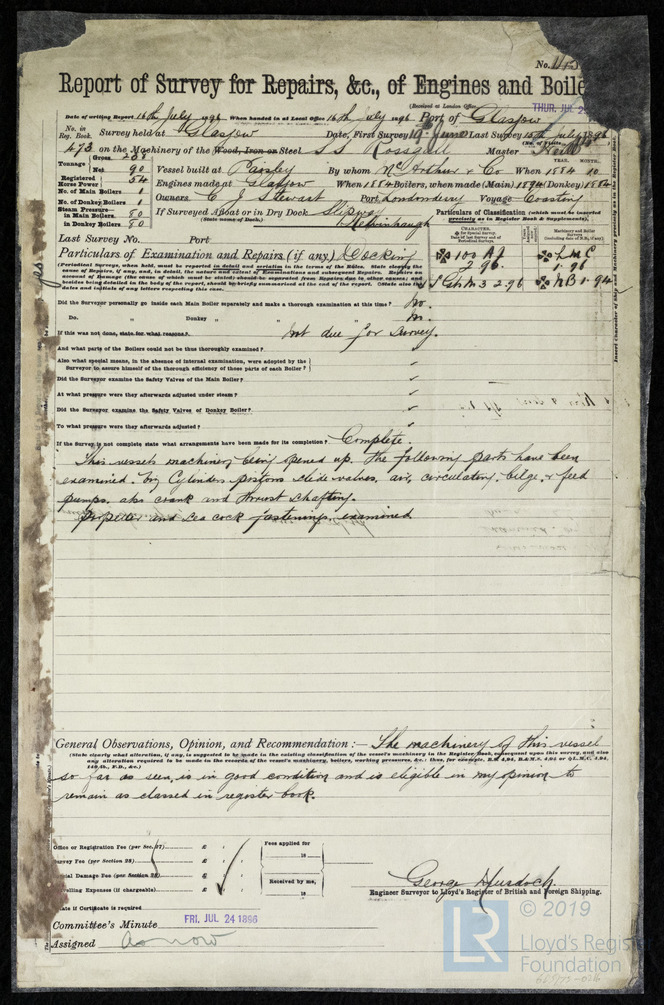 No.
Report of Survey for Repairs, &c., of Engines and Boile
(Received at London Office
THUR. JUL 2
Date of writing Report 16th July 1896 When handed in at Local Office 16th July 1896 Port of Glasgow
No. in Reg. Book. Survey held at Glasgow Date, First Survey 10th June Last Survey 15th July 1896
(No. of Visits
473 on the Machinery of the Wood, Iron or Steel S S Rossgull Master
Tonnage Gross. 200
Net 90
Vessel built at Paisley By whom McArthur & Co When 1884 10
YEAR. MONTH.
Registered Horse Power 54
Engines made at Glasgow When 1884 Boilers, when made (Main) 1894 (Donkey) 1884
No. of Main Boilers 1
No. of Donkey Boilers 1
Owners C J Stewart Port Londonderry Voyage Coasting
Steam Pressure— in Main Boilers 80
in Donkey Boilers 80
If Surveyed Afloat or in Dry Dock Slipway
(State name of Dock.)
Particulars of Classification (which must be inserted precisely as in Register Book & Supplements).
Last Survey No. Port
Particulars of Examination and Repairs (if any) Docking
100 A1
2.96
LMC
1.96
2.96
NB 1.94
Did the Surveyor personally go inside each Main Boiler separately and make a thorough examination at this time? No.
Do. " Donkey " " " No.
If this was not done, state for what reasons? Not due for Survey.
And what parts of the Boilers could not be thus thoroughly examined?
Also what special means, in the absence of internal examination, were adopted by the
Surveyor to assure himself of the thorough efficiency of those parts of each Boiler?
Did the Surveyor examine the Safety Valves of the Main Boiler?
At what pressure were they afterwards adjusted under steam?
Did the Surveyor examine the Safety Valves of Donkey Boiler?
To what pressure were they afterwards adjusted?
If the Survey is not complete state what arrangements have been made for its completion? Complete.
This vessels machinery being opened up. The following parts have been
examined. Cylinders pistons slide valves, air, circulating, bilge & feed
pumps. also crank and thrust shafting.
Propeller and sea cock fastenings examined
General Observations, Opinion, and Recommendation:— The machinery of this vessel
(State clearly what alteration, if any, is suggested to be made in the existing classification of the vessel's machinery in the Register Book, consequent upon this survey, and also
any alteration required to be made in the records of the vessel's machinery, boilers, working pressures, &c.: thus, for example,
so far as seen, is in good condition and is eligible in my opinion to
remain as classed in register book.
Office or Registration Fee (per Sec. 27) £ : :
Survey Fee (per Section 28) £ : :
Special Damage Fee (per Section 28) £ : :
Travelling Expenses (if chargeable) £ : :
Fees applied for
18
Received by me,
18
George Murdoch.
Engineer Surveyor to Lloyd's Register of British and Foreign Shipping.
State if Certificate is required
Committee's Minute FRI. JUL 24 1896
Assigned As now
LR
© 2019
Lloyd's Register
Foundation